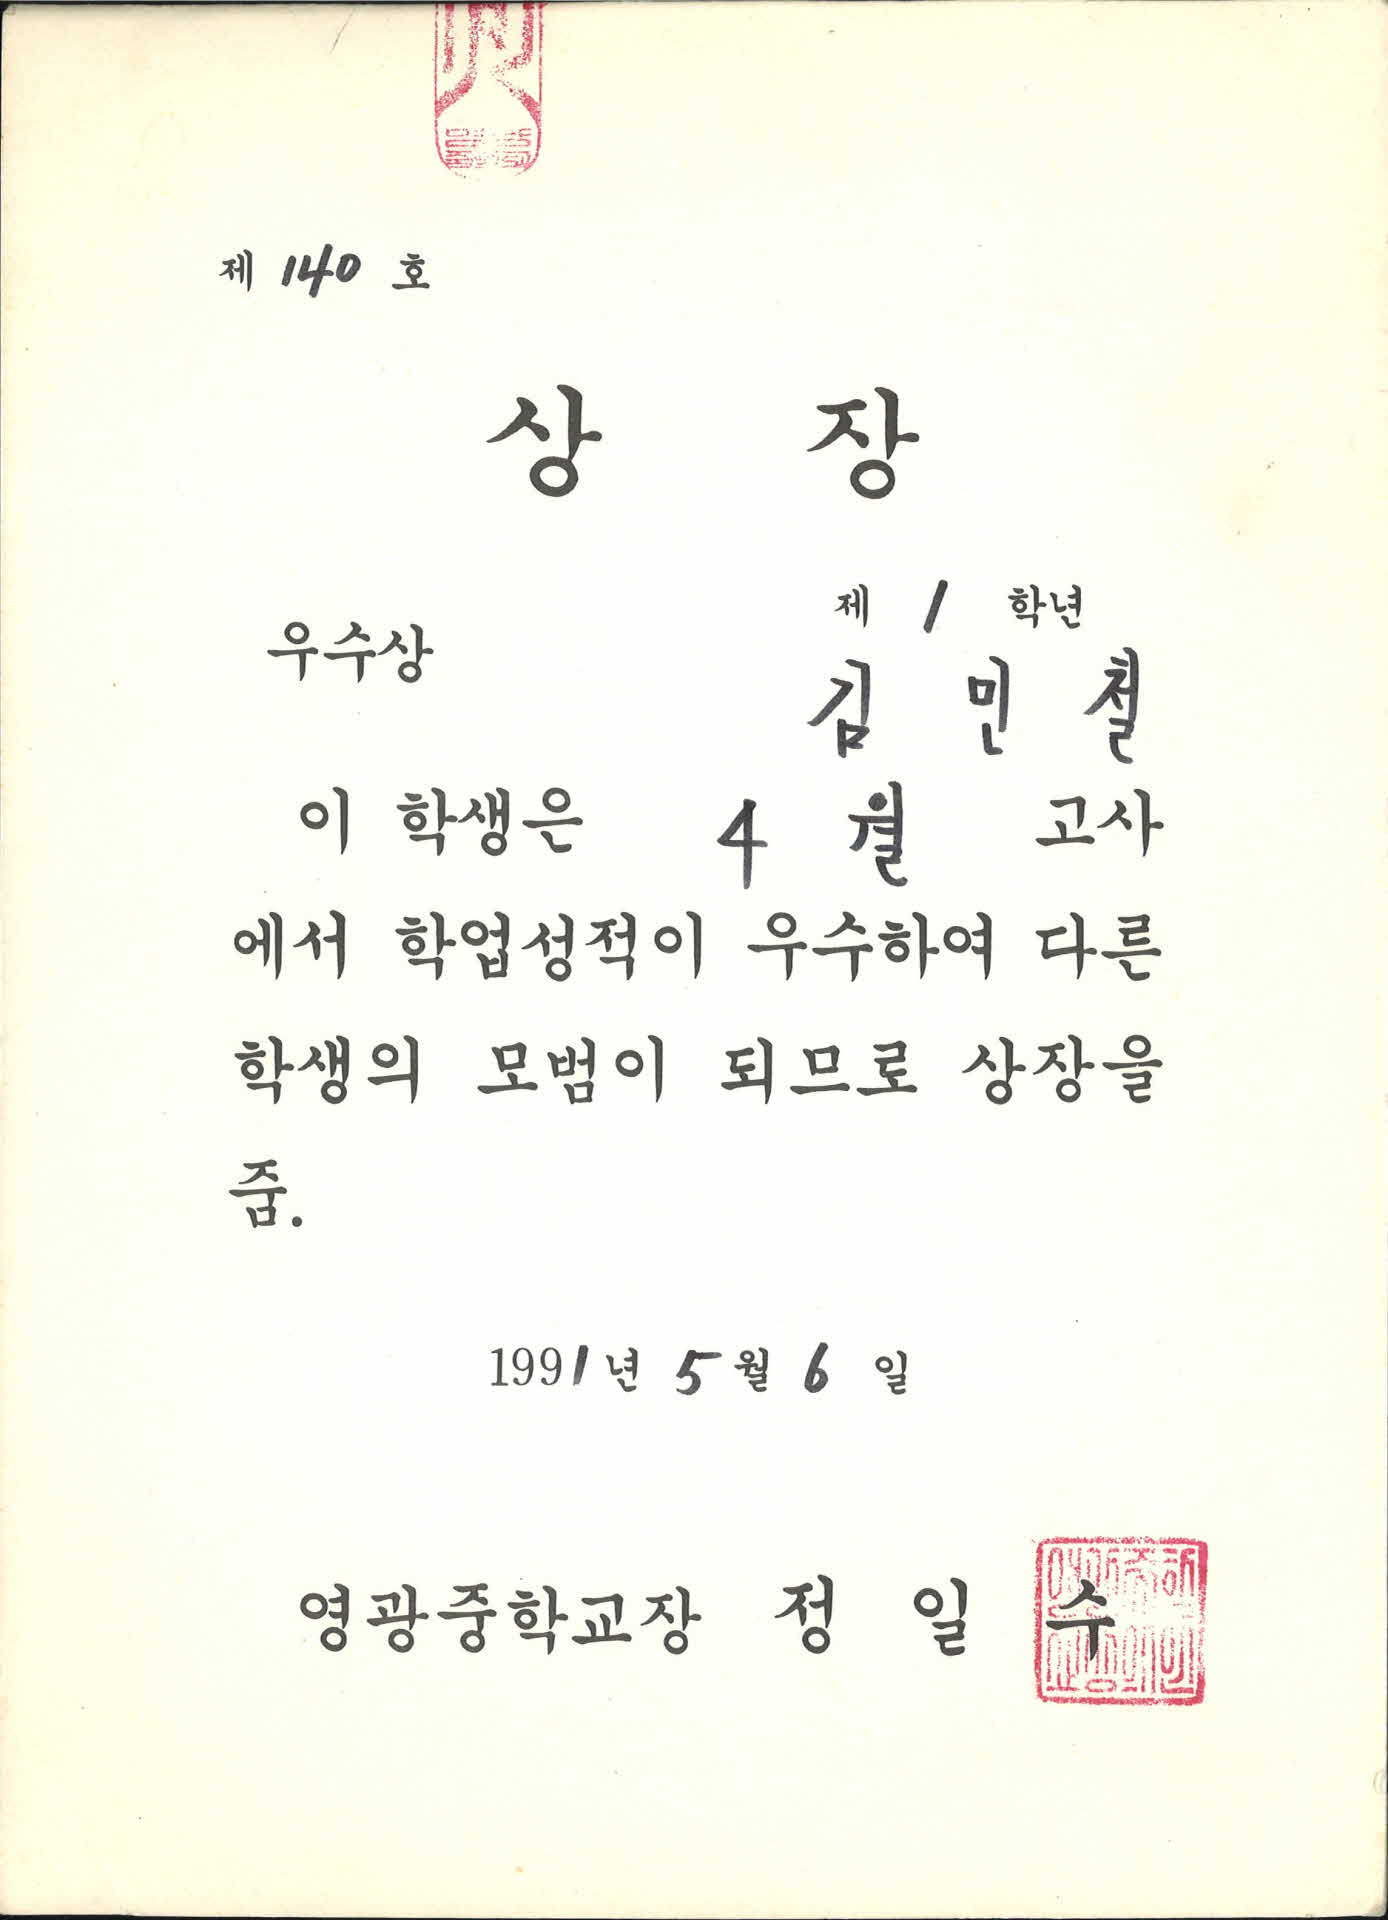 제 140 호
상 장
제 1 학년
우수상
김 민 철
이 학생은 4 월 고사
에서 학업성적이 우수하여 다른
학생의 모범이 되므로 상장을
줌.
1991년 5월 6일
영광중학교장 정 일 수